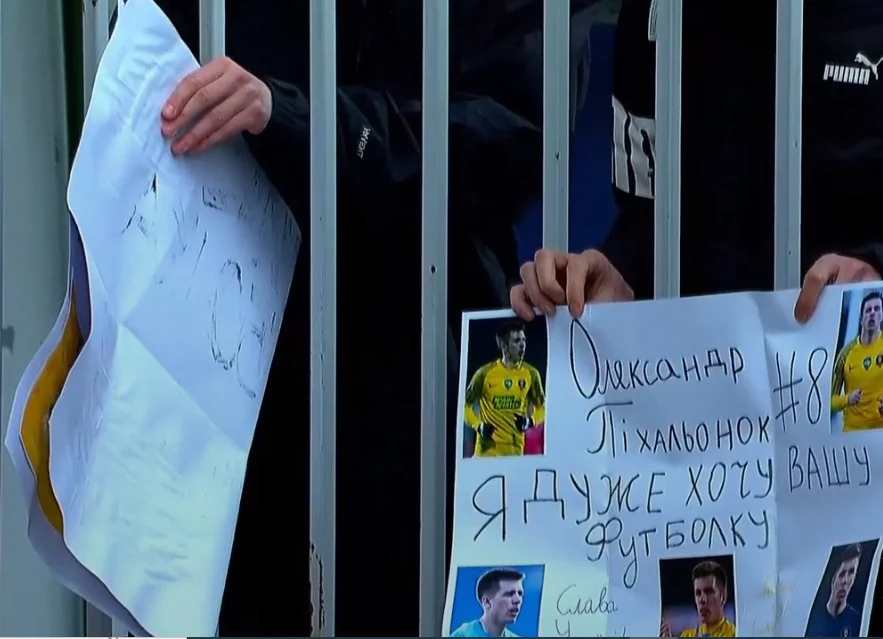 PUMA
Олександр
#8
Піхальонок
Я ДУЖЕ ХОЧУ ВАШУ
ФУТБОЛКУ
Слава